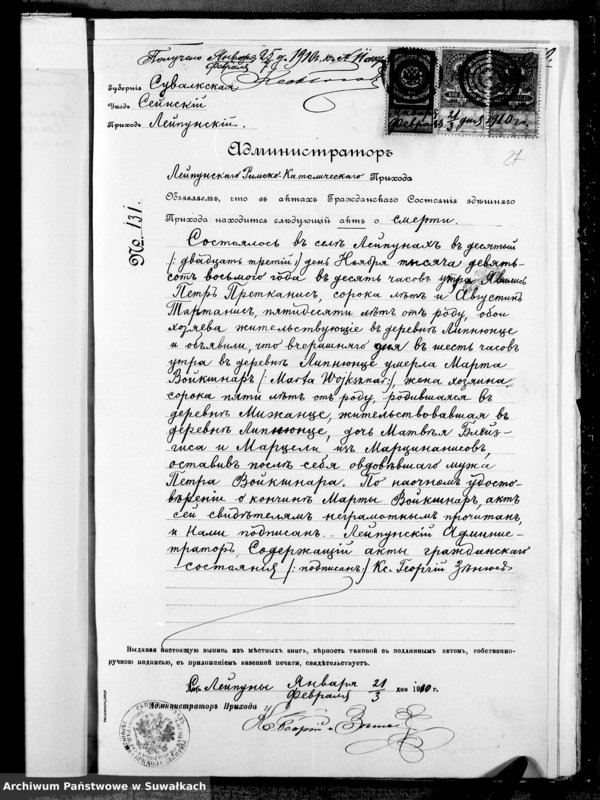 Получено Января 25 д. 1910 г.
Февраля
Губернія Сувалкская
Уѣздъ Сейнскій
Приходъ Лейпунскій.
21/3 дня 1910 г.
27
Администраторъ
Лейпунскаго Римско-Католическаго Прихода
Объявляемъ, что въ актахъ Гражданскаго Состоянія здѣшняго
Прихода находится слѣдующій актъ о смерти.
No. 131.
Состоялось въ селѣ Лейпунахъ въ десятый
/: двадцать третій :/ день Ноября тысяча девять-
сотъ восьмого года въ десять часовъ утра. Явились
Петръ Претканисъ, сорока лѣтъ и Августинъ
Тартанисъ, пятидесяти лѣтъ отъ роду, обои
хозяева жительствующіе въ деревнѣ Липнюнце
и объявили, что вчерашняго дня въ шесть часовъ
утра въ деревнѣ Липнюнце умерла Марта
Войкшнаръ /: Marta Wojksznar :/ жена хозяина
сорока пяти лѣтъ отъ роду, родившаяся въ
деревнѣ Мижанце, жительствовавшая въ
деревнѣ Липнюнце, дочь Матвѣя Блейз-
гиса и Марцели изъ Марцинанисовъ,
оставивъ послѣ себя овдовѣвшаго мужа
Петра Войкшнара. По наочномъ удосто-
вѣреніи о кончинѣ Марты Войкшнаръ, актъ
сей свидѣтелямъ неграмотнымъ прочтанъ,
и Нами подписанъ. Лейпунскій Админис-
траторъ Содержащій акты гражданскаго
состоянія /: подписанъ :/ Кс. Георгій
Выдавая настоящую выпись изъ мѣстныхъ книгъ, вѣрность таковой съ подлиннымъ актомъ, собственно-
ручною подписью, съ приложеніемъ казенной печати, свидѣтельствуетъ.
Лейпуны Января 21
Февраля 3 дня 1910 г.
Администраторъ Прихода
Кс Георгій
Archiwum Państwowe w Suwałkach